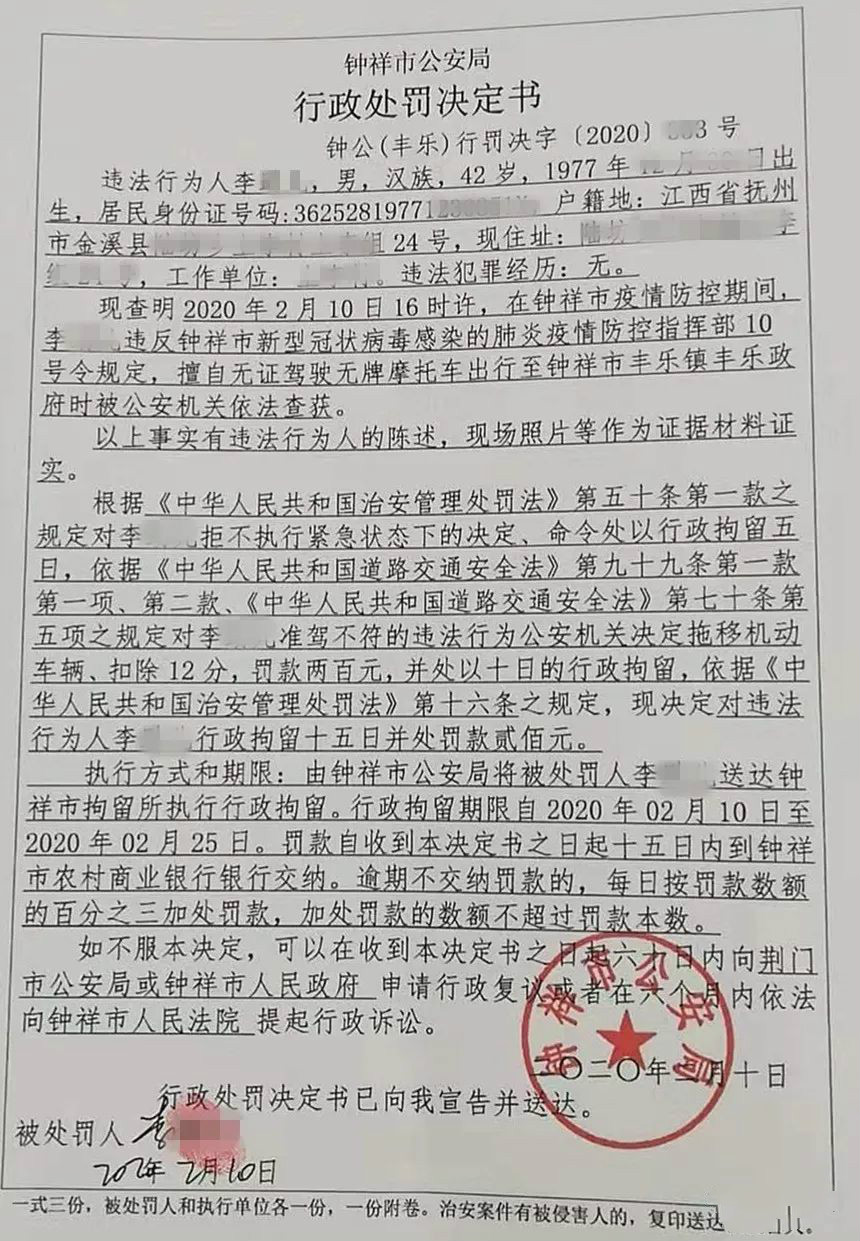 钟祥市公安局
行政处罚决定书
钟公(丰乐)行罚决字〔2020〕3号
违法行为人李，男，汉族，42岁，1977年出
生，居民身份证号码:3625281977，户籍地：江西省抚州
市金溪县组24号，现住址：
，工作单位：。违法犯罪经历：无。
现查明2020年2月10日16时许，在钟祥市疫情防控期间，
李违反钟祥市新型冠状病毒感染的肺炎疫情防控指挥部10
号令规定，擅自无证驾驶无牌摩托车出行至钟祥市丰乐镇丰乐政
府时被公安机关依法查获。
以上事实有违法行为人的陈述，现场照片等作为证据材料证
实。
根据《中华人民共和国治安管理处罚法》第五十条第一款之
规定对李拒不执行紧急状态下的决定、命令处以行政拘留五
日，依据《中华人民共和国道路交通安全法》第九十九条第一款
第一项、第二款、《中华人民共和国道路交通安全法》第七十条第
五项之规定对李准驾不符的违法行为公安机关决定拖移机动
车辆、扣除12分，罚款两百元，并处以十日的行政拘留，依据《中
华人民共和国治安管理处罚法》第十六条之规定，现决定对违法
行为人李行政拘留十五日并处罚款贰佰元。
执行方式和期限：由钟祥市公安局将被处罚人李送达钟
祥市拘留所执行行政拘留。行政拘留期限自2020年02月10日至
2020年02月25日。罚款自收到本决定书之日起十五日内到钟祥
市农村商业银行银行交纳。逾期不交纳罚款的，每日按罚款数额
的百分之三加处罚款，加处罚款的数额不超过罚款本数。
如不服本决定，可以在收到本决定书之日起六十日内向荆门
市公安局或钟祥市人民政府 申请行政复议或者在六个月内依法
向钟祥市人民法院 提起行政诉讼。
钟祥市公安局
二〇二〇年二月十日
行政处罚决定书已向我宣告并送达。
被处罚人 李
2020年2月10日
一式三份，被处罚人和执行单位各一份，一份附卷。治安案件有被侵害人的，复印送达